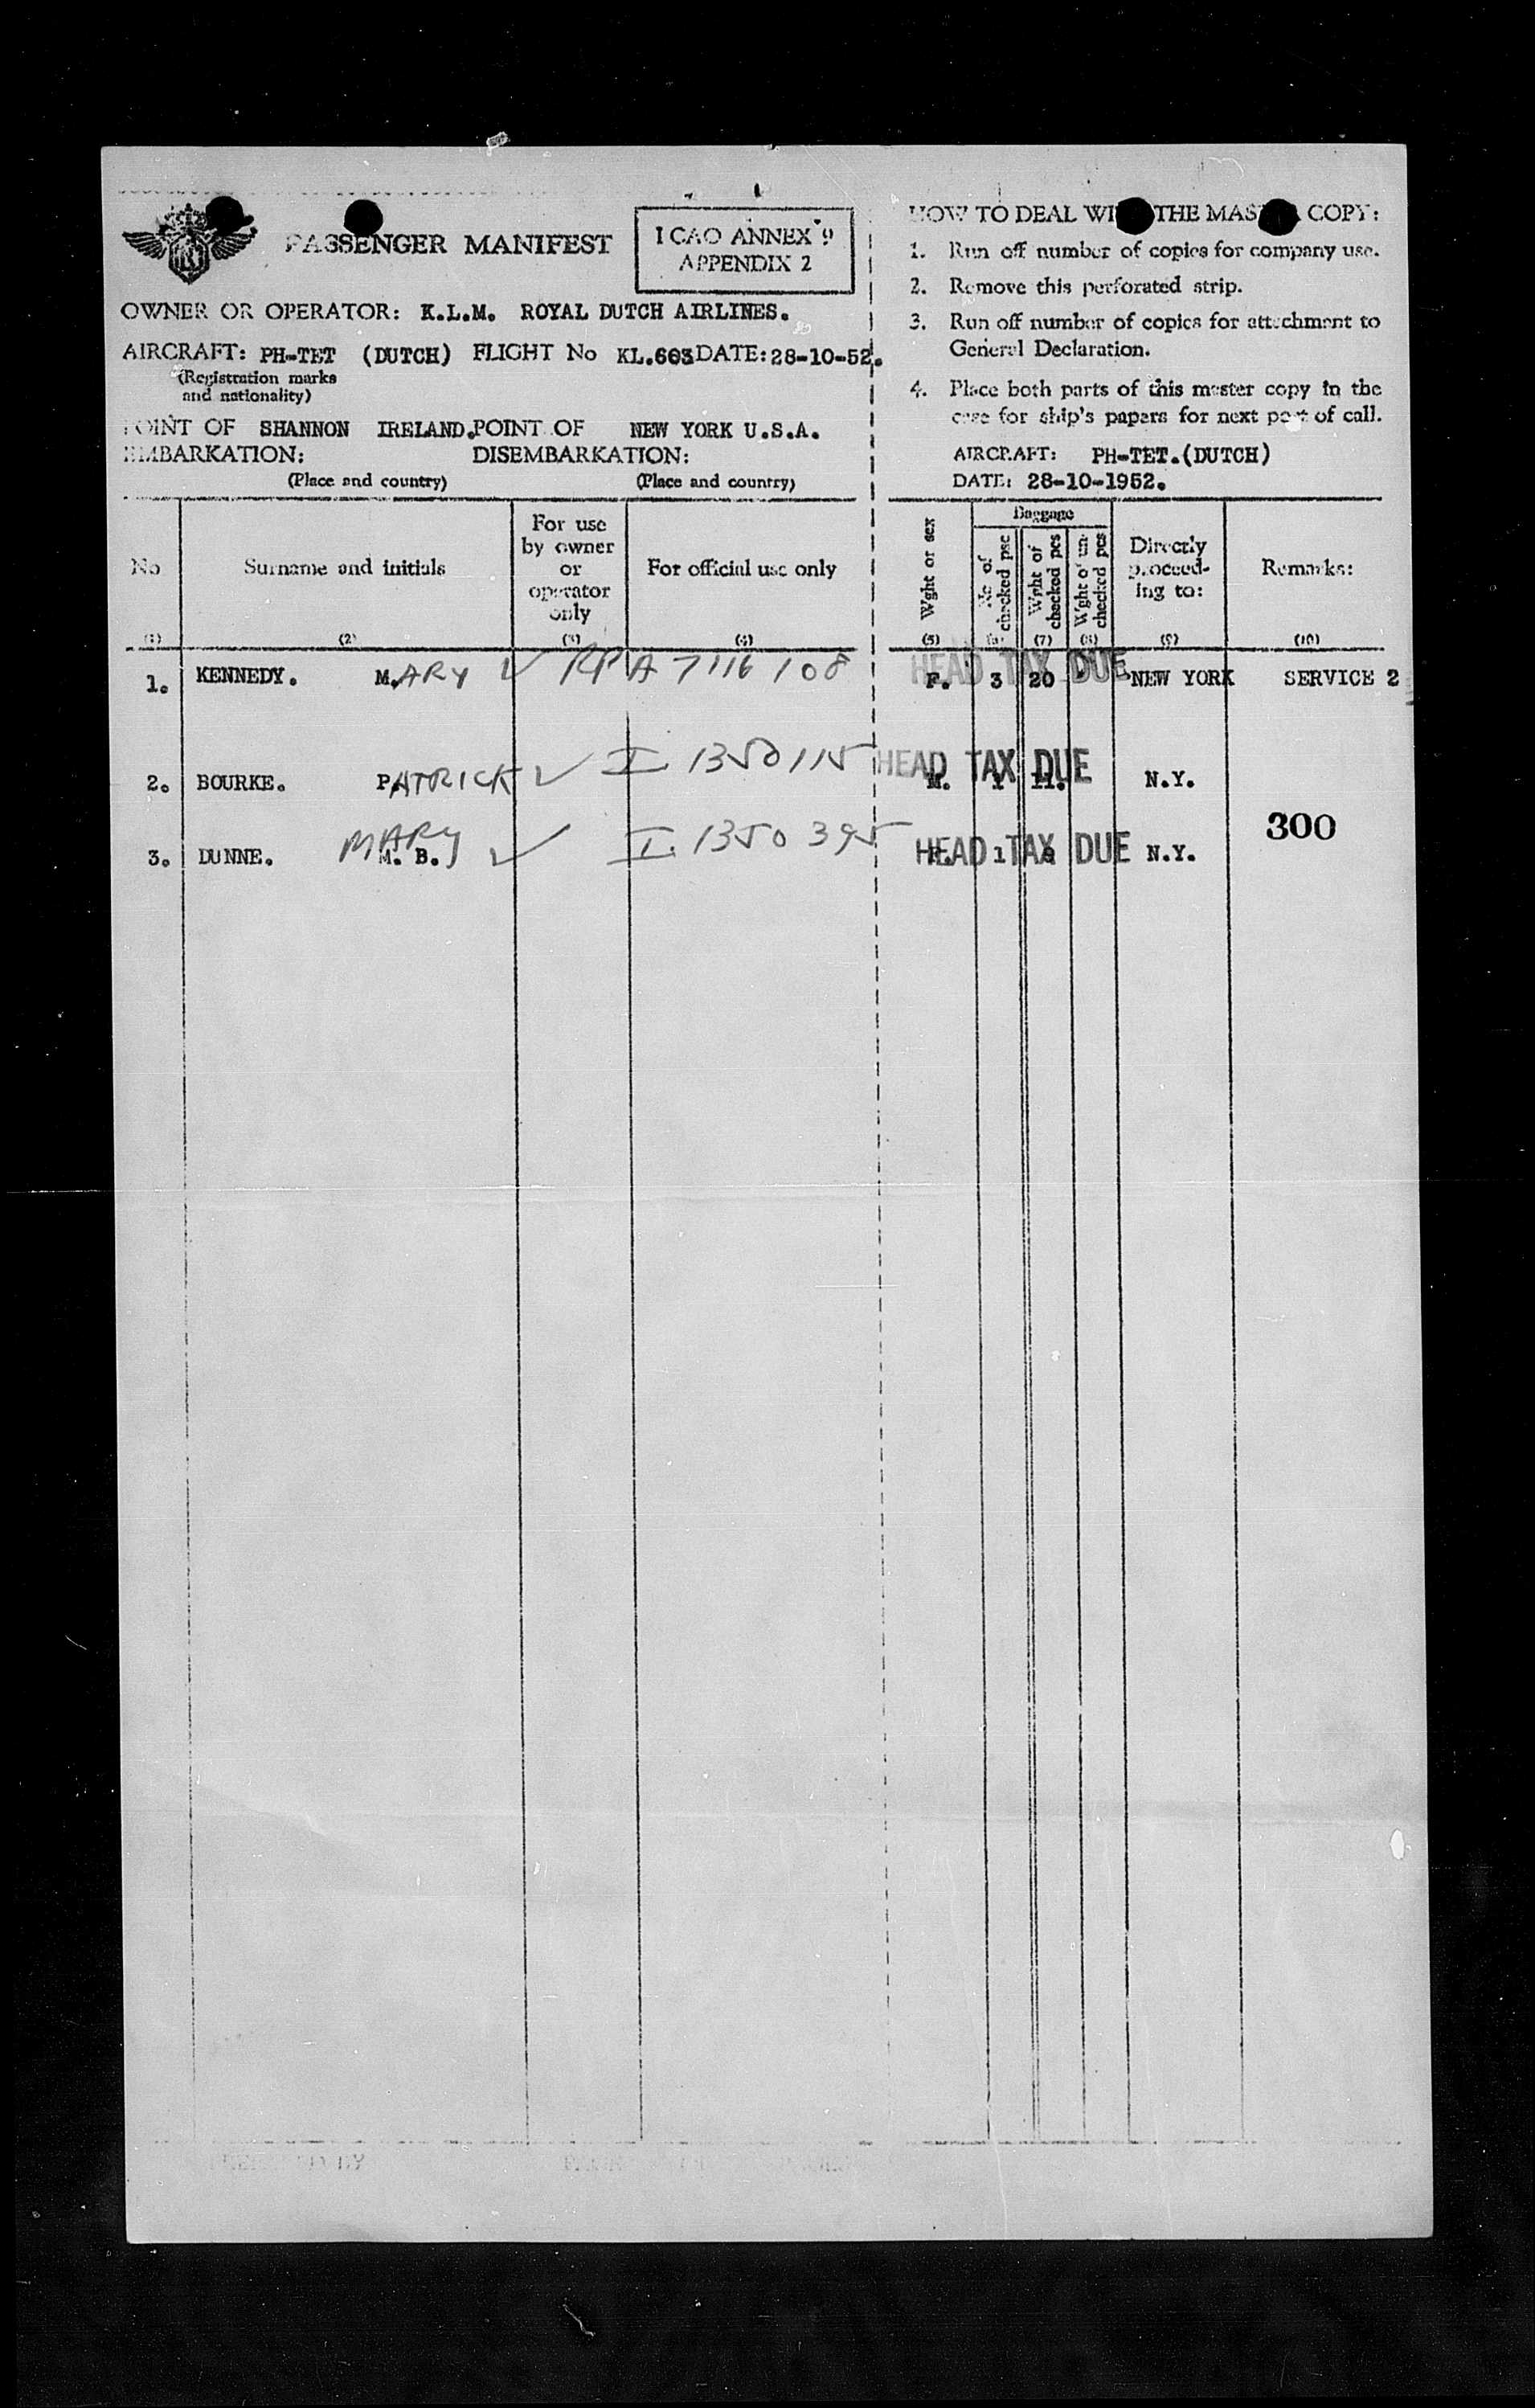 PASSENGER MANIFEST
ICAO ANNEX 9
APPENDIX 2
OWNER OR OPERATOR: K.L.M. ROYAL DUTCH AIRLINES.
AIRCRAFT: PH-TET (DUTCH) FLIGHT No KL.603 DATE: 28-10-52.
(Registration marks
and nationality)
POINT OF SHANNON IRELAND. POINT OF NEW YORK U.S.A.
EMBARKATION: DISEMBARKATION:
(Place and country) (Place and country)
HOW TO DEAL WITH THE MASTER COPY:
1. Run off number of copies for company use.
2. Remove this perforated strip.
3. Run off number of copies for attachment to
General Declaration.
4. Place both parts of this master copy in the
case for ship's papers for next port of call.
AIRCRAFT: PH-TET.(DUTCH)
DATE: 28-10-1952.
No
Surname and initials
For use
by owner
or
operator
only
For official use only
Wght or sex
Baggage
No of
checked pcs
Wght of
checked pcs
Wght of un-
checked pcs
Directly
proceed-
ing to:
Remarks:
(1) (2) (3) (4) (5) (6) (7) (8) (9) (10)
1. KENNEDY. M.ARY ✓ RP A 7116108 HEAD TAX DUE F. 3 20 NEW YORK SERVICE 2
2. BOURKE. PATRICK ✓ I 1350115 HEAD TAX DUE M. 1 11. N.Y.
300
3. DUNNE. MARY M. B. ✓ I. 1350395 HEAD TAX DUE 1 N.Y.